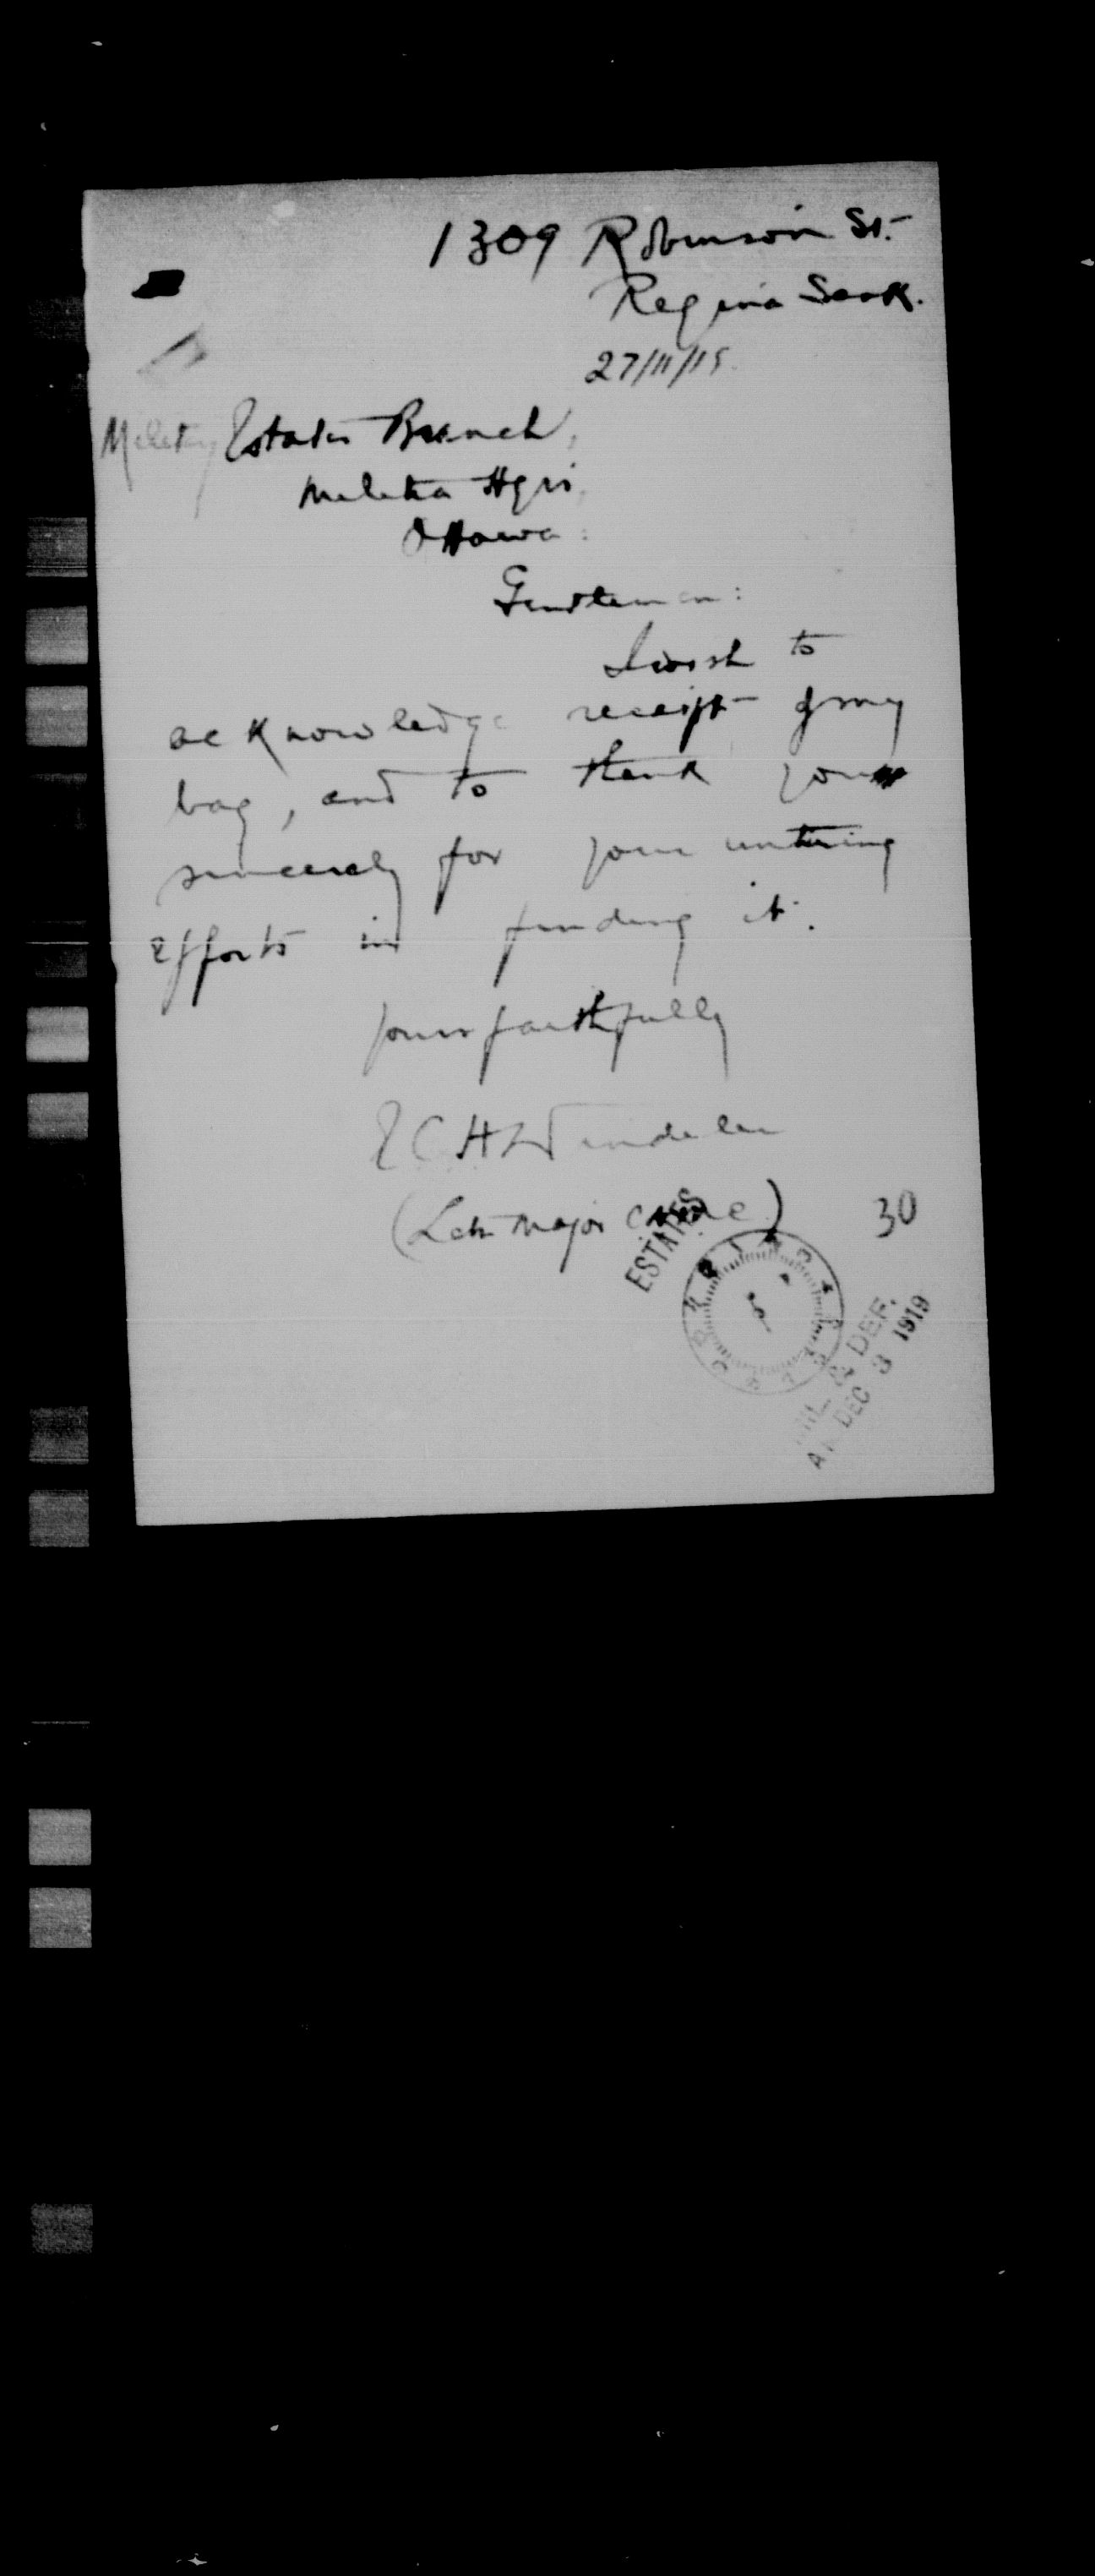 1309 Robinson St.
Regina Sask.
27/11/19.
Military Estates Branch,
Militia Hqrs,
Ottawa:
Gentlemen:
I wish to
acknowledge receipt of my
bag, and to thank you
sincerely for your untiring
efforts in finding it.
yours faithfully
E C H Windeler
(Late Major C.A.M.C.)
30
ESTATES
MIL. & DEF.
DEC 3 1919